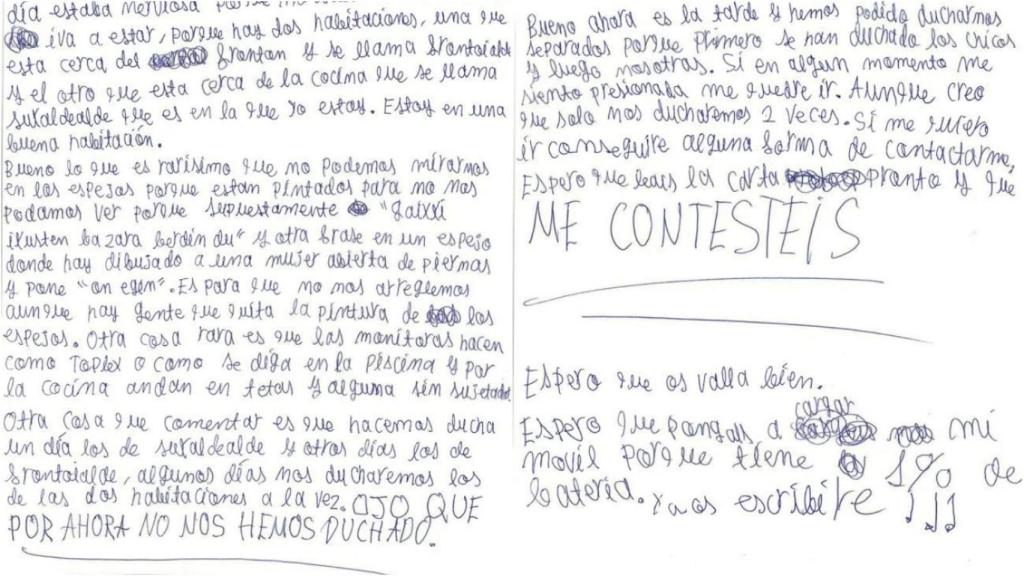 día estaba nerviosa
iva a estar, porque hay dos habitaciones, una que
esta cerca del fronton y se llama frontoialde
y el otro que esta cerca de la cocina que se llama
sutaldealde que es en la que yo estoy. Estoy en una
buena habitación.
Bueno lo que es rarísimo que no podemos mirarnos
en los espejos porque estan pintados para no nos
podamos ver porque supuestamente "Gaixxi
ikusten bazara berdin du" y otra frase en un espejo
donde hay dibujado a una mujer abierta de piernas
y pone "on egin". Es para que no nos arreglemos
aunque hay gente que quita la pintura de los
espejos. Otra cosa rara es que las monitoras hacen
como Toplex o como se diga en la piscina y por
la cocina andan en tetas y alguna sin sujetador.
Otra cosa que comentar es que hacemos ducha
un día los de sutaldealde y otros días los de
frontoialde, algunos días nos ducharemos los
de las dos habitaciones a la vez. OJO QUE
POR AHORA NO NOS HEMOS DUCHADO.
Bueno ahora es la tarde y hemos podido ducharnos
separados porque primero se han duchado los chicos
y luego nosotras. Si en algun momento me
siento presionada me querre ir. Aunque creo
que solo nos ducharemos 2 veces. Si me quiero
ir conseguire alguna forma de contactarme,
Espero que leais la carta pronto y que
ME CONTESTEIS
Espero que os valla bien.
cargar
Espero que pongais a mi
movil porque tiene 1% de
bateria. Ya os escribire